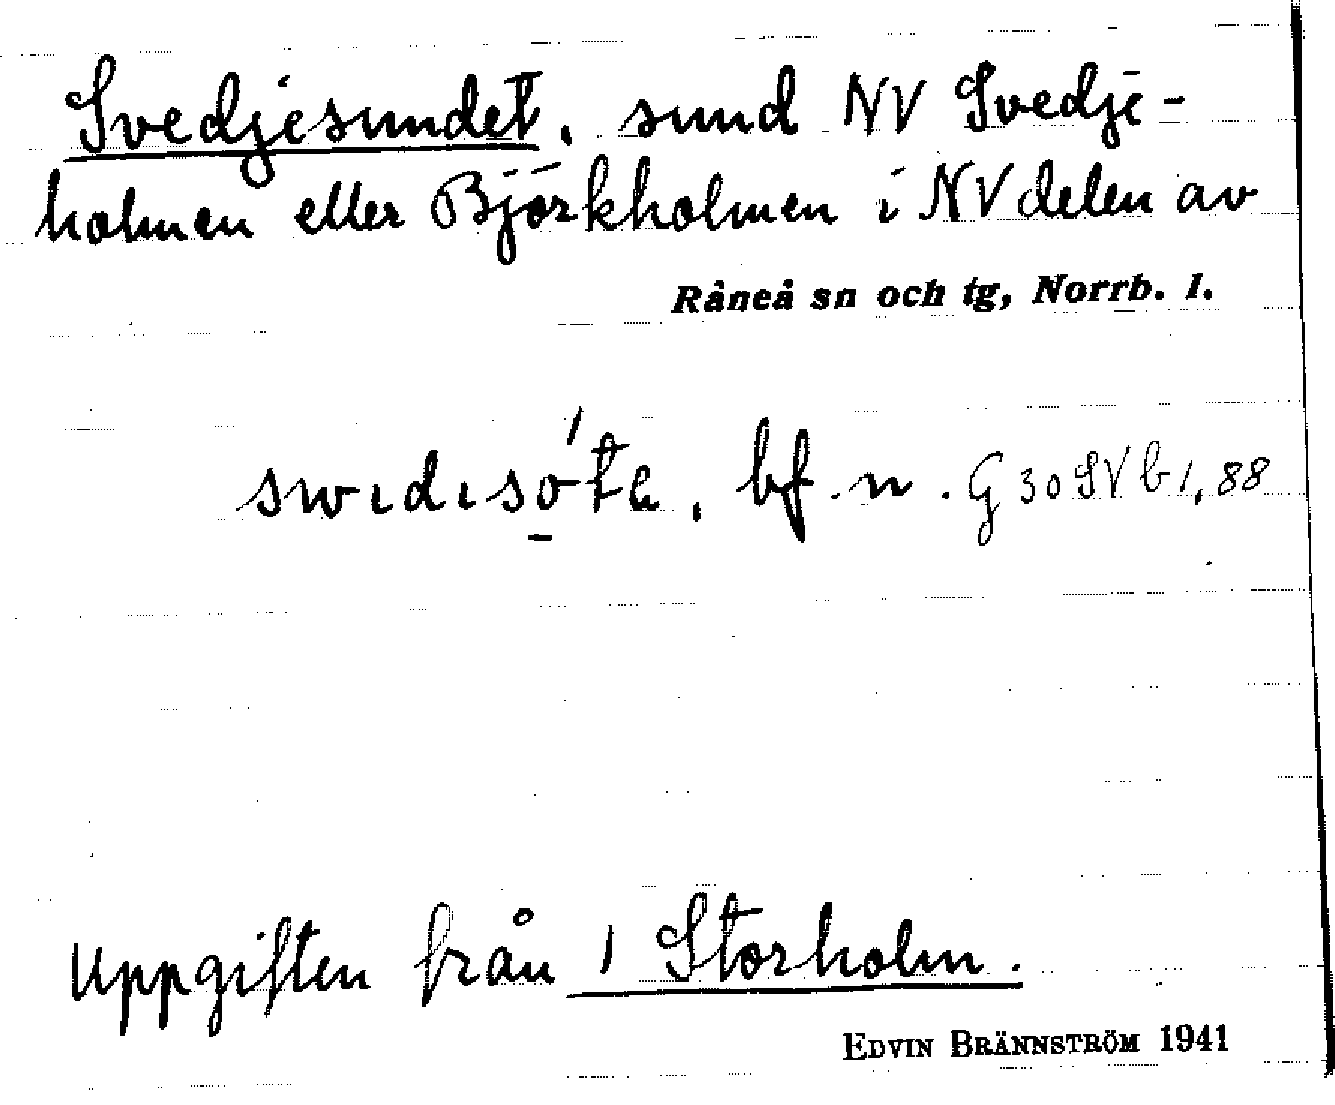 Svedjesundet, sund NV Svedje-
holmen eller Björkholmen i NV delen av
Råneå sn och tg, Norrb. l.
swıdısó̲ta, bf. n. G 30 SV b 1, 88
Uppgiften från 1 Storholm.
EDVIN BRÄNNSTRÖM 1941